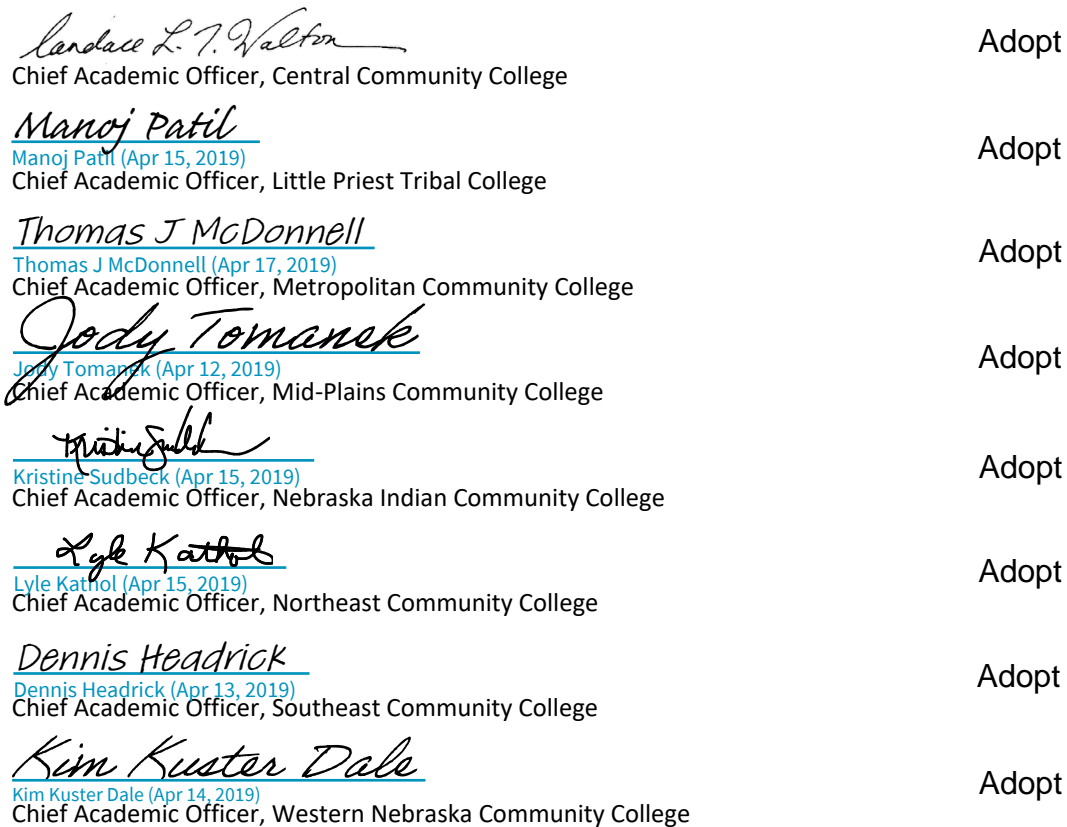 Candace L. T. Walton Adopt
Chief Academic Officer, Central Community College
Manoj Patil
Manoj Patil (Apr 15, 2019) Adopt
Chief Academic Officer, Little Priest Tribal College
Thomas J McDonnell
Thomas J McDonnell (Apr 17, 2019) Adopt
Chief Academic Officer, Metropolitan Community College
Jody Tomanek
Jody Tomanek (Apr 12, 2019) Adopt
Chief Academic Officer, Mid-Plains Community College
Kristine Sudbeck (Apr 15, 2019) Adopt
Chief Academic Officer, Nebraska Indian Community College
Lyle Kathol
Lyle Kathol (Apr 15, 2019) Adopt
Chief Academic Officer, Northeast Community College
Dennis Headrick
Dennis Headrick (Apr 13, 2019) Adopt
Chief Academic Officer, Southeast Community College
Kim Kuster Dale
Kim Kuster Dale (Apr 14, 2019) Adopt
Chief Academic Officer, Western Nebraska Community College